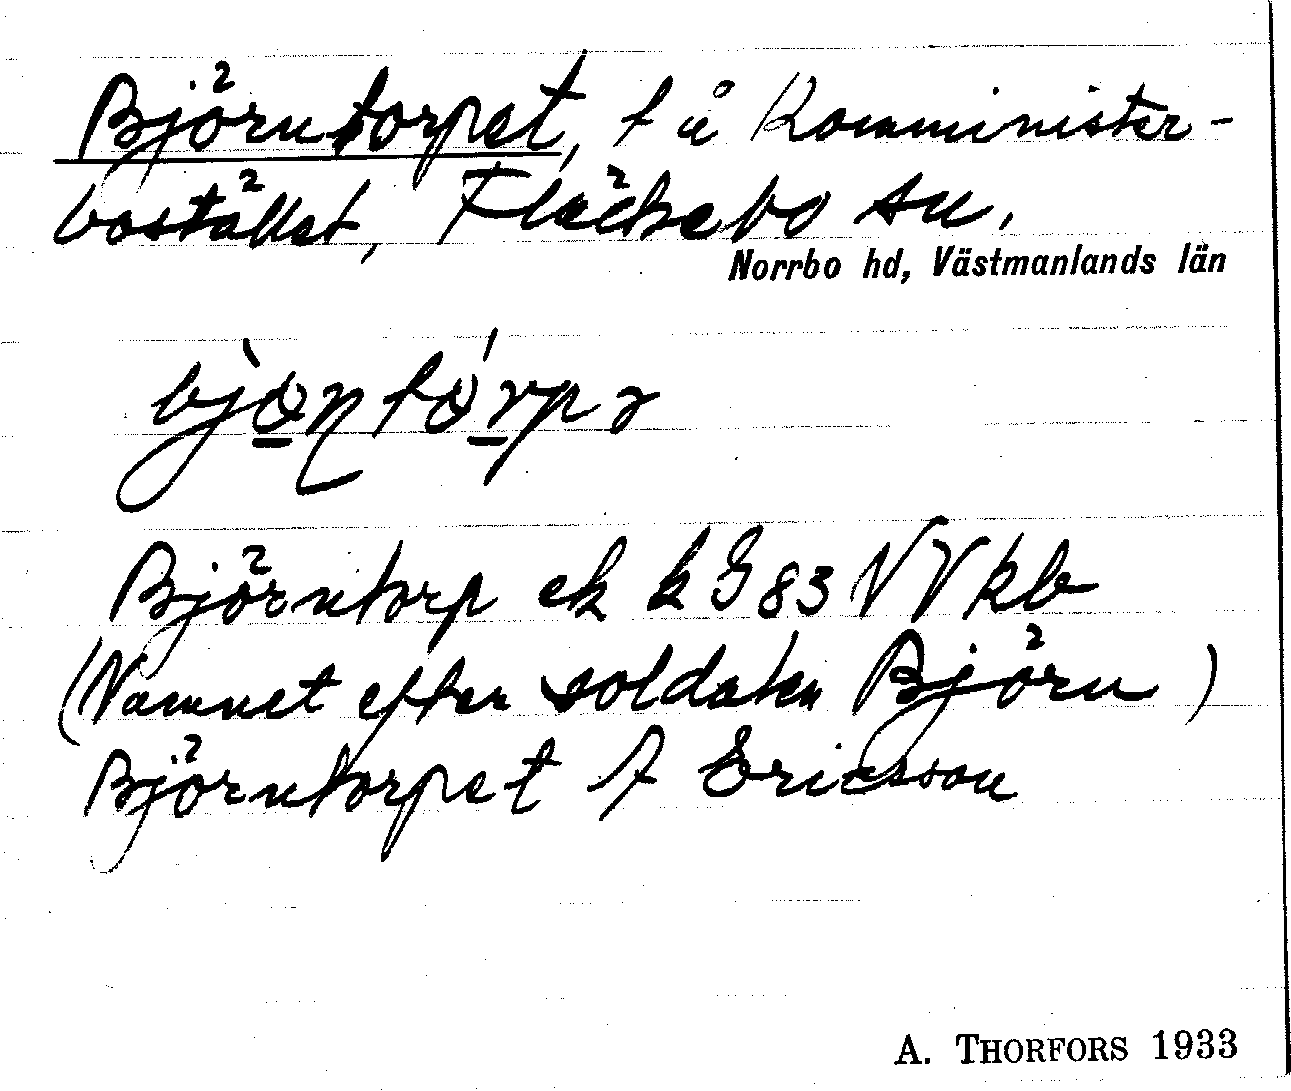 Björntorpet, t å Komminister-
bostället, Fläckebo sn.
Norrbo hd, Västmanlands län
Björntorp ek k G 83 NV kb
(Namnet efter soldaten Björn)
Björntorpet A Ericsson
A. THORFORS 1933